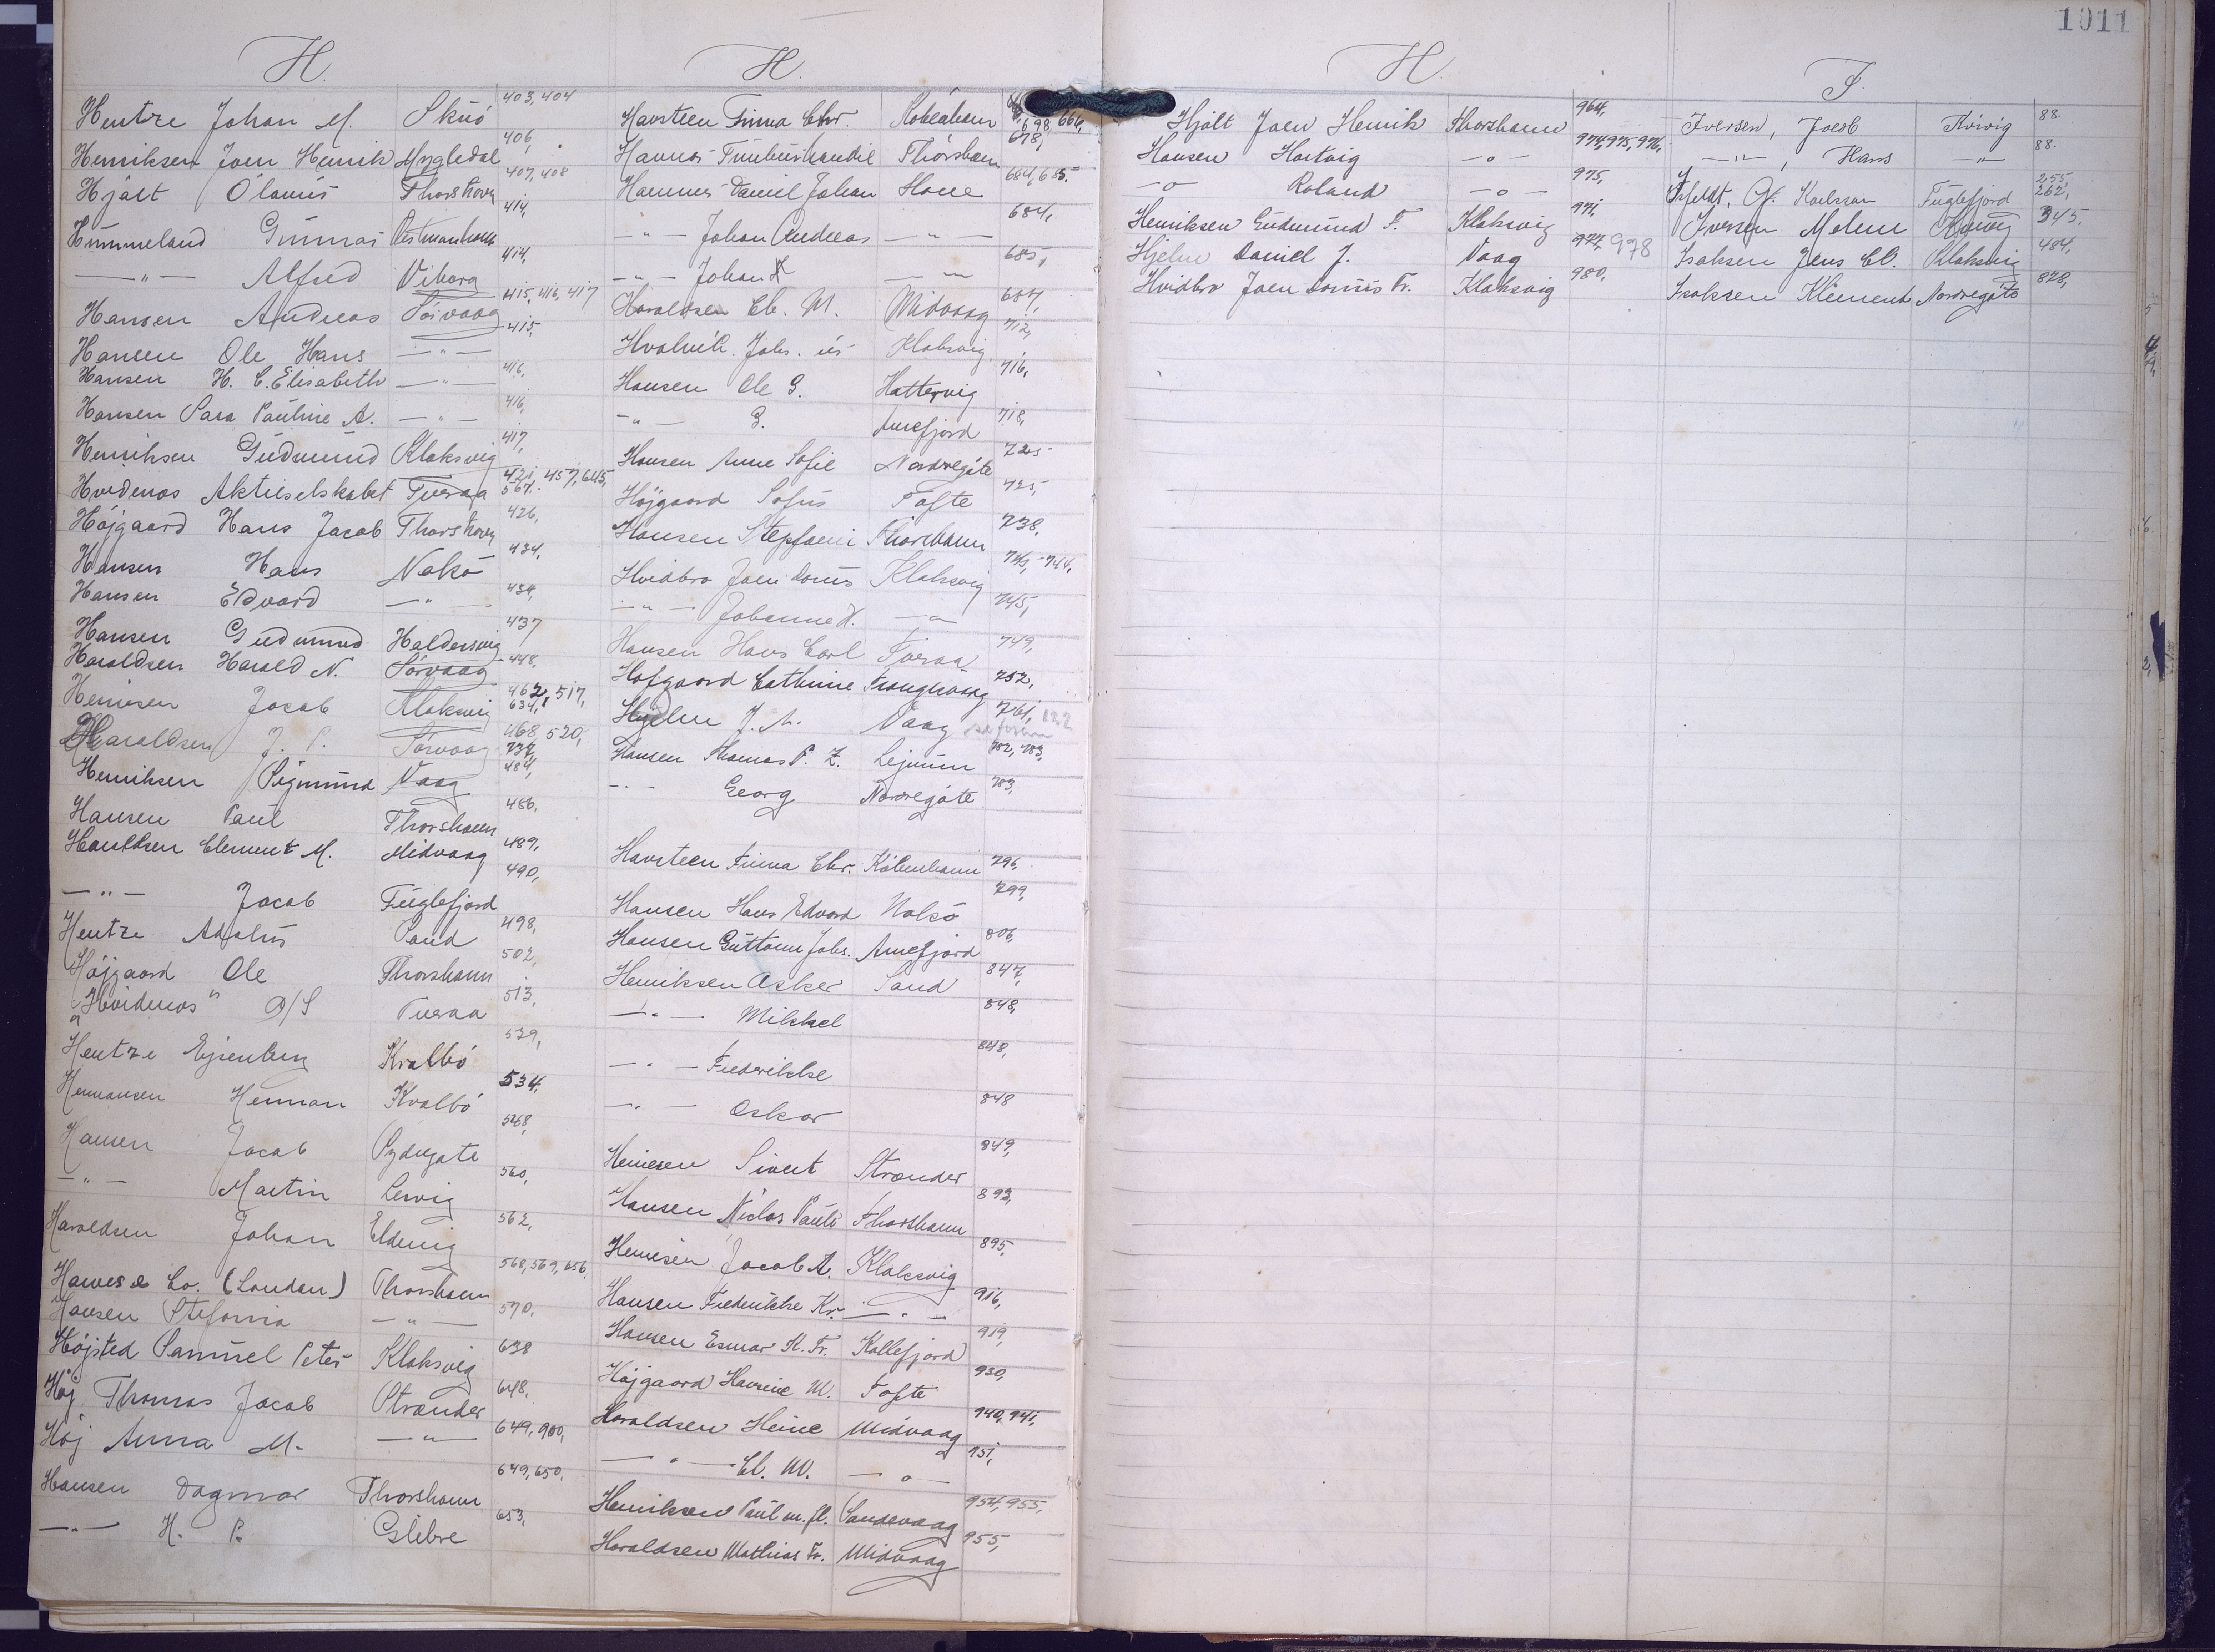 1011
H.
Hentze Johan M. Skuö 403, 404
Henriksen Joen Henrik Mygledal 406,
Hjalt Ólavús Thorshavn 407, 408
Hummeland Gunnar Vestmanhavn 414,
—"— Alfred Viborg 414,
Hansen Andreas Sörvaag 415, 416, 417
Hansen Ole Hans —"— 415,
Hansen H. C. Elisabeth —"— 416,
Hansen Sara Pauline A. —"— 416,
Henriksen Gudmund Klaksvig 417,
Hvidenæs Aktieselskabet Tveraa 421, 457, 645, 567.
Höjgaard Hans Jacob Thorshavn 426,
Hansen Hans Nolsö 434,
Hansen Edvard —"— 434,
Hansen Gudmund Haldersvig 437
Haraldsen Harald N. Sörvaag 448,
Heinesen Jacob Klaksvig 462, 517, 634,
Haraldsen J. P. Sörvaag 468, 520, 737,
Henriksen Sigmund Vaag 484,
Hansen Paul Thorshavn 486,
Haraldsen Clement M. Midvaag 489,
—"— Jacob Fuglefjord 490,
Hentze Adolus Sand 498,
Höjgaard Ole Thorshavn 502,
"Hvidenæs" A/S Tveraa 513,
Hentze Ejsenberg Kvalbö 529,
Hermansen Herman Kvalbö 534,
Hansen Jacob Sydregöte 548,
—"— Martin Lervig 560,
Haraldsen Johan Eldevig 562,
Hawes & Co. (London) Thorshavn 568, 569, 656,
Hansen Stefania —"— 570,
Höjsted Samuel Peter Klaksvig 638
Höj Thomas Jacob Strænder 648,
Höj Anna M. —"— 649, 900,
Hansen Dagmar Thorshavn 649, 650,
—"— H. P. Glebre 653,
H.
Havsteen Firma Chr. Köbenhavn 698, 666,
Havnar Timburhandil Thórshavn 678,
Hammer Daniel Johan Hove 684, 685.
—"— Johan Andreas —"— 684,
—"— Johan H —"— 685,
Haraldsen Cl. M. Midvaag 687,
Hvalvik. Johs. úr Klaksvig 712,
Hansen Ole G. Hattervig 716,
—"— G. Arnefjord 718,
Hansen Anne Sofie Nordregöte 725
Höjgaard Sofus Tofte 725,
Hansen Stepfani Thorshavn 738,
Hvidbro Joen Domis Klaksvig 743, 744,
—"— Johanne H. —"— 745,
Hansen Hans Carl Tveraa 749,
Hofgaard Cathrine Trangisvaag 752,
Hjelm J. A. Vaag 761, 122
Hansen Thomas P. Z. Lejnum 782, 783,
—"— Georg Nordregöte 783,
Havsteen Firma Chr. Köbenhavn 796,
Hansen Hans Edvard Nolsö 799,
Hansen Guttorm Johs. Arnefjord 806,
Henriksen Asker Sand 847,
—"— Mikkel 848,
—"— Frederikke 848,
—"— Oskar 848
Heinesen Sivert Strænder 849,
Hansen Niclas Pauli Thorshavn 893,
Heinesen Jacob A. Klaksvig 895,
Hansen Frederikke Kr. —"— 916,
Hansen Esmar K. Fr. Kollefjord 919,
Höjgaard Hansine M. Tofte 930,
Haraldsen Heine Midvaag 940, 941,
—"— Cl. M. —"— 951,
Henriksen Paul m. fl. Sandevaag 954, 955,
Haraldsen Mathias Fr. Midvaag 955,
H
Hjalt Joen Henrik Thorshavn 964,
Hansen Hartvig —"— 974, 975, 976,
—"— Roland —"— 975,
Henriksen Gudmund F. Klaksvig 971,
Hjelm Daniel J. Vaag 977, 978
Hvidbro Joen Domis Fr. Klaksvig 980,
I.
Iversen, Jacob Kvivig 88.
—"—, Hans —"— 88.
Isfeldt, Gf. Karlsson Fuglefjord 255, 262,
Iversen Malene Kvivig 345,
Isaksen Jens Cl. Klaksvig 484,
Isaksen Klement Nordregöte 828,